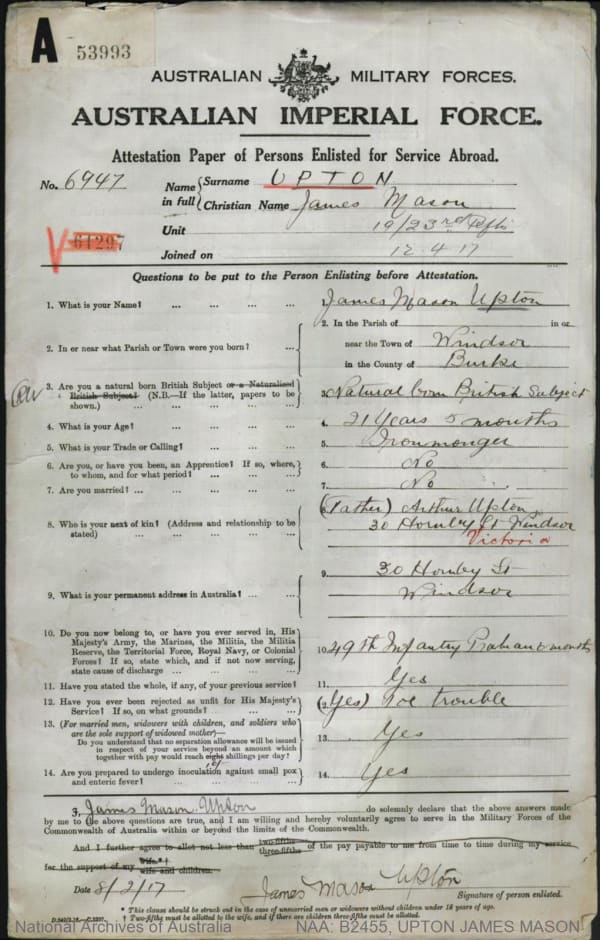 A 53993
AUSTRALIAN MILITARY FORCES.
AUSTRALIAN IMPERIAL FORCE.
Attestation Paper of Persons Enlisted for Service Abroad.
No. 6947
Name in full { Surname UPTON
Christian Name James Mason
Unit 19/23rd Refts
V 61297
Joined on 12.4.17
Questions to be put to the Person Enlisting before Attestation.
1. What is your Name? ... ... ... ... James Mason Upton
2. In or near what Parish or Town were you born? ... 2. In the Parish of in or
near the Town of Windsor
in the County of Burke
3. Are you a natural born British Subject or a Naturalised
British Subject? (N.B.—If the latter, papers to be
shown.) ... ... ... ... 3. Natural born British Subject
4. What is your Age? ... ... ... ... 4. 21 Years 5 months
5. What is your Trade or Calling? ... ... ... 5. Ironmonger
6. Are you, or have you been, an Apprentice? If so, where,
to whom, and for what period? ... ... ... 6. No
7. Are you married? ... ... ... ... 7. No
8. Who is your next of kin? (Address and relationship to be
stated) ... ... ... ... (Father) Arthur Upton
30 Hornby St Windsor
Victoria
9. What is your permanent address in Australia? ... ... 9. 30 Hornby St
Windsor
10. Do you now belong to, or have you ever served in, His
Majesty's Army, the Marines, the Militia, the Militia
Reserve, the Territorial Force, Royal Navy, or Colonial
Forces? If so, state which, and if not now serving,
state cause of discharge ... ... ... 10. 49th Infantry Prahran 6 months
11. Have you stated the whole, if any, of your previous service? 11. Yes
12. Have you ever been rejected as unfit for His Majesty's
Service? If so, on what grounds? ... ... (Yes) Toe trouble
13. (For married men, widowers with children, and soldiers who
are the sole support of widowed mother)—
Do you understand that no separation allowance will be issued
in respect of your service beyond an amount which
together with pay would reach eight shillings per day? 13. Yes
14. Are you prepared to undergo inoculation against small pox
and enteric fever? ... ... ... ... 14. Yes
I, James Mason Upton do solemnly declare that the above answers made
by me to the above questions are true, and I am willing and hereby voluntarily agree to serve in the Military Forces of the
Commonwealth of Australia within or beyond the limits of the Commonwealth.
And I further agree to allot not less than two-fifths three-fifths of the pay payable to me from time to time during my service
for the support of my wife.*† wife and children.
Date 8/2/17 James Mason Upton
Signature of person enlisted.
* This clause should be struck out in the case of unmarried men or widowers without children under 18 years of age.
† Two-fifths must be allotted to the wife, and if there are children three-fifths must be allotted.
National Archives of Australia NAA: B2455, UPTON JAMES MASON